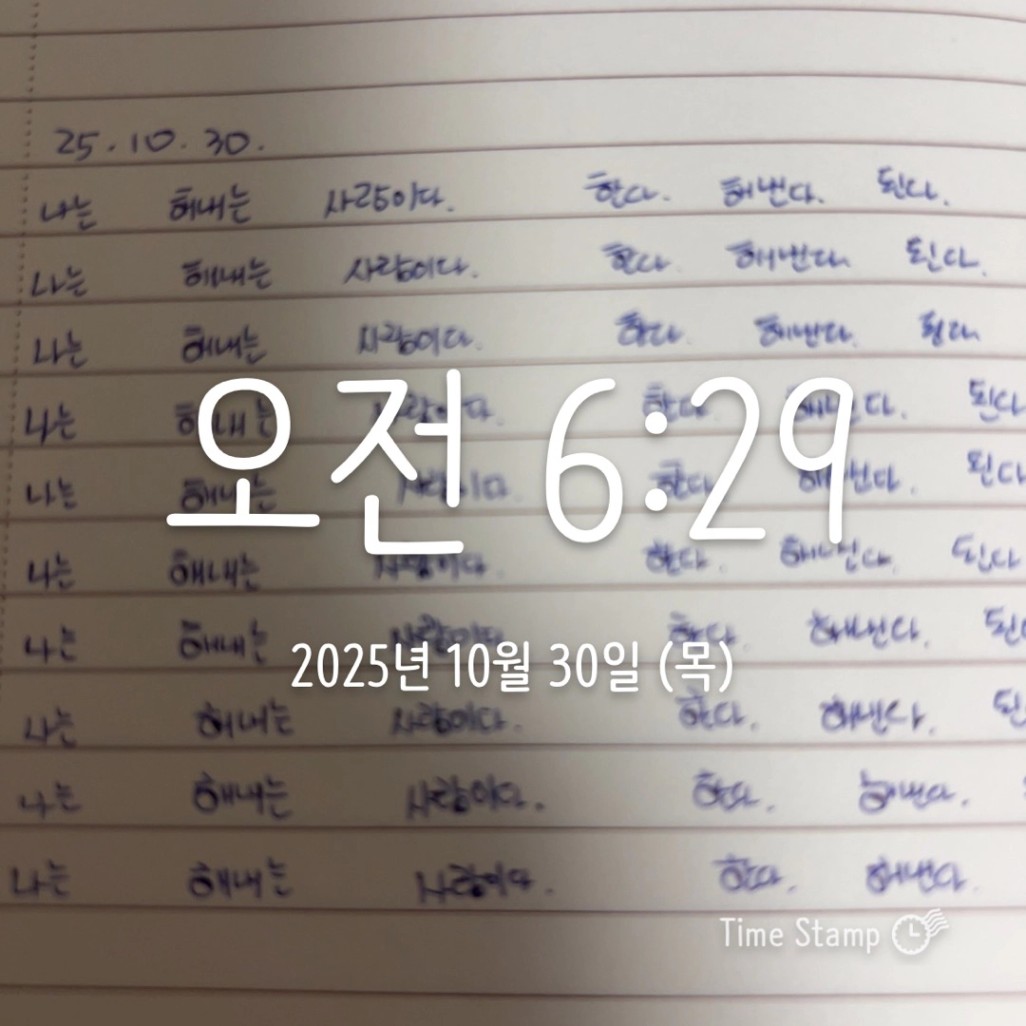 25.10.30.
나는 해내는 사람이다. 한다. 해낸다. 된다.
나는 해내는 사람이다. 한다. 해낸다. 된다.
나는 해내는 사람이다. 한다. 해낸다. 된다.
나는 해내는 사람이다. 한다. 해낸다. 된다
오전 6:29
나는 해내는 사람이다. 한다. 해낸다. 된다
나는 해내는 사람이다. 한다. 해낸다. 된다
나는 해내는 사람이다. 한다. 해낸다. 된다
2025년 10월 30일 (목)
나는 해내는 사람이다. 한다. 해낸다. 된
나는 해내는 사람이다. 한다. 해낸다.
나는 해내는 사람이다. 한다. 해낸다.
Time Stamp